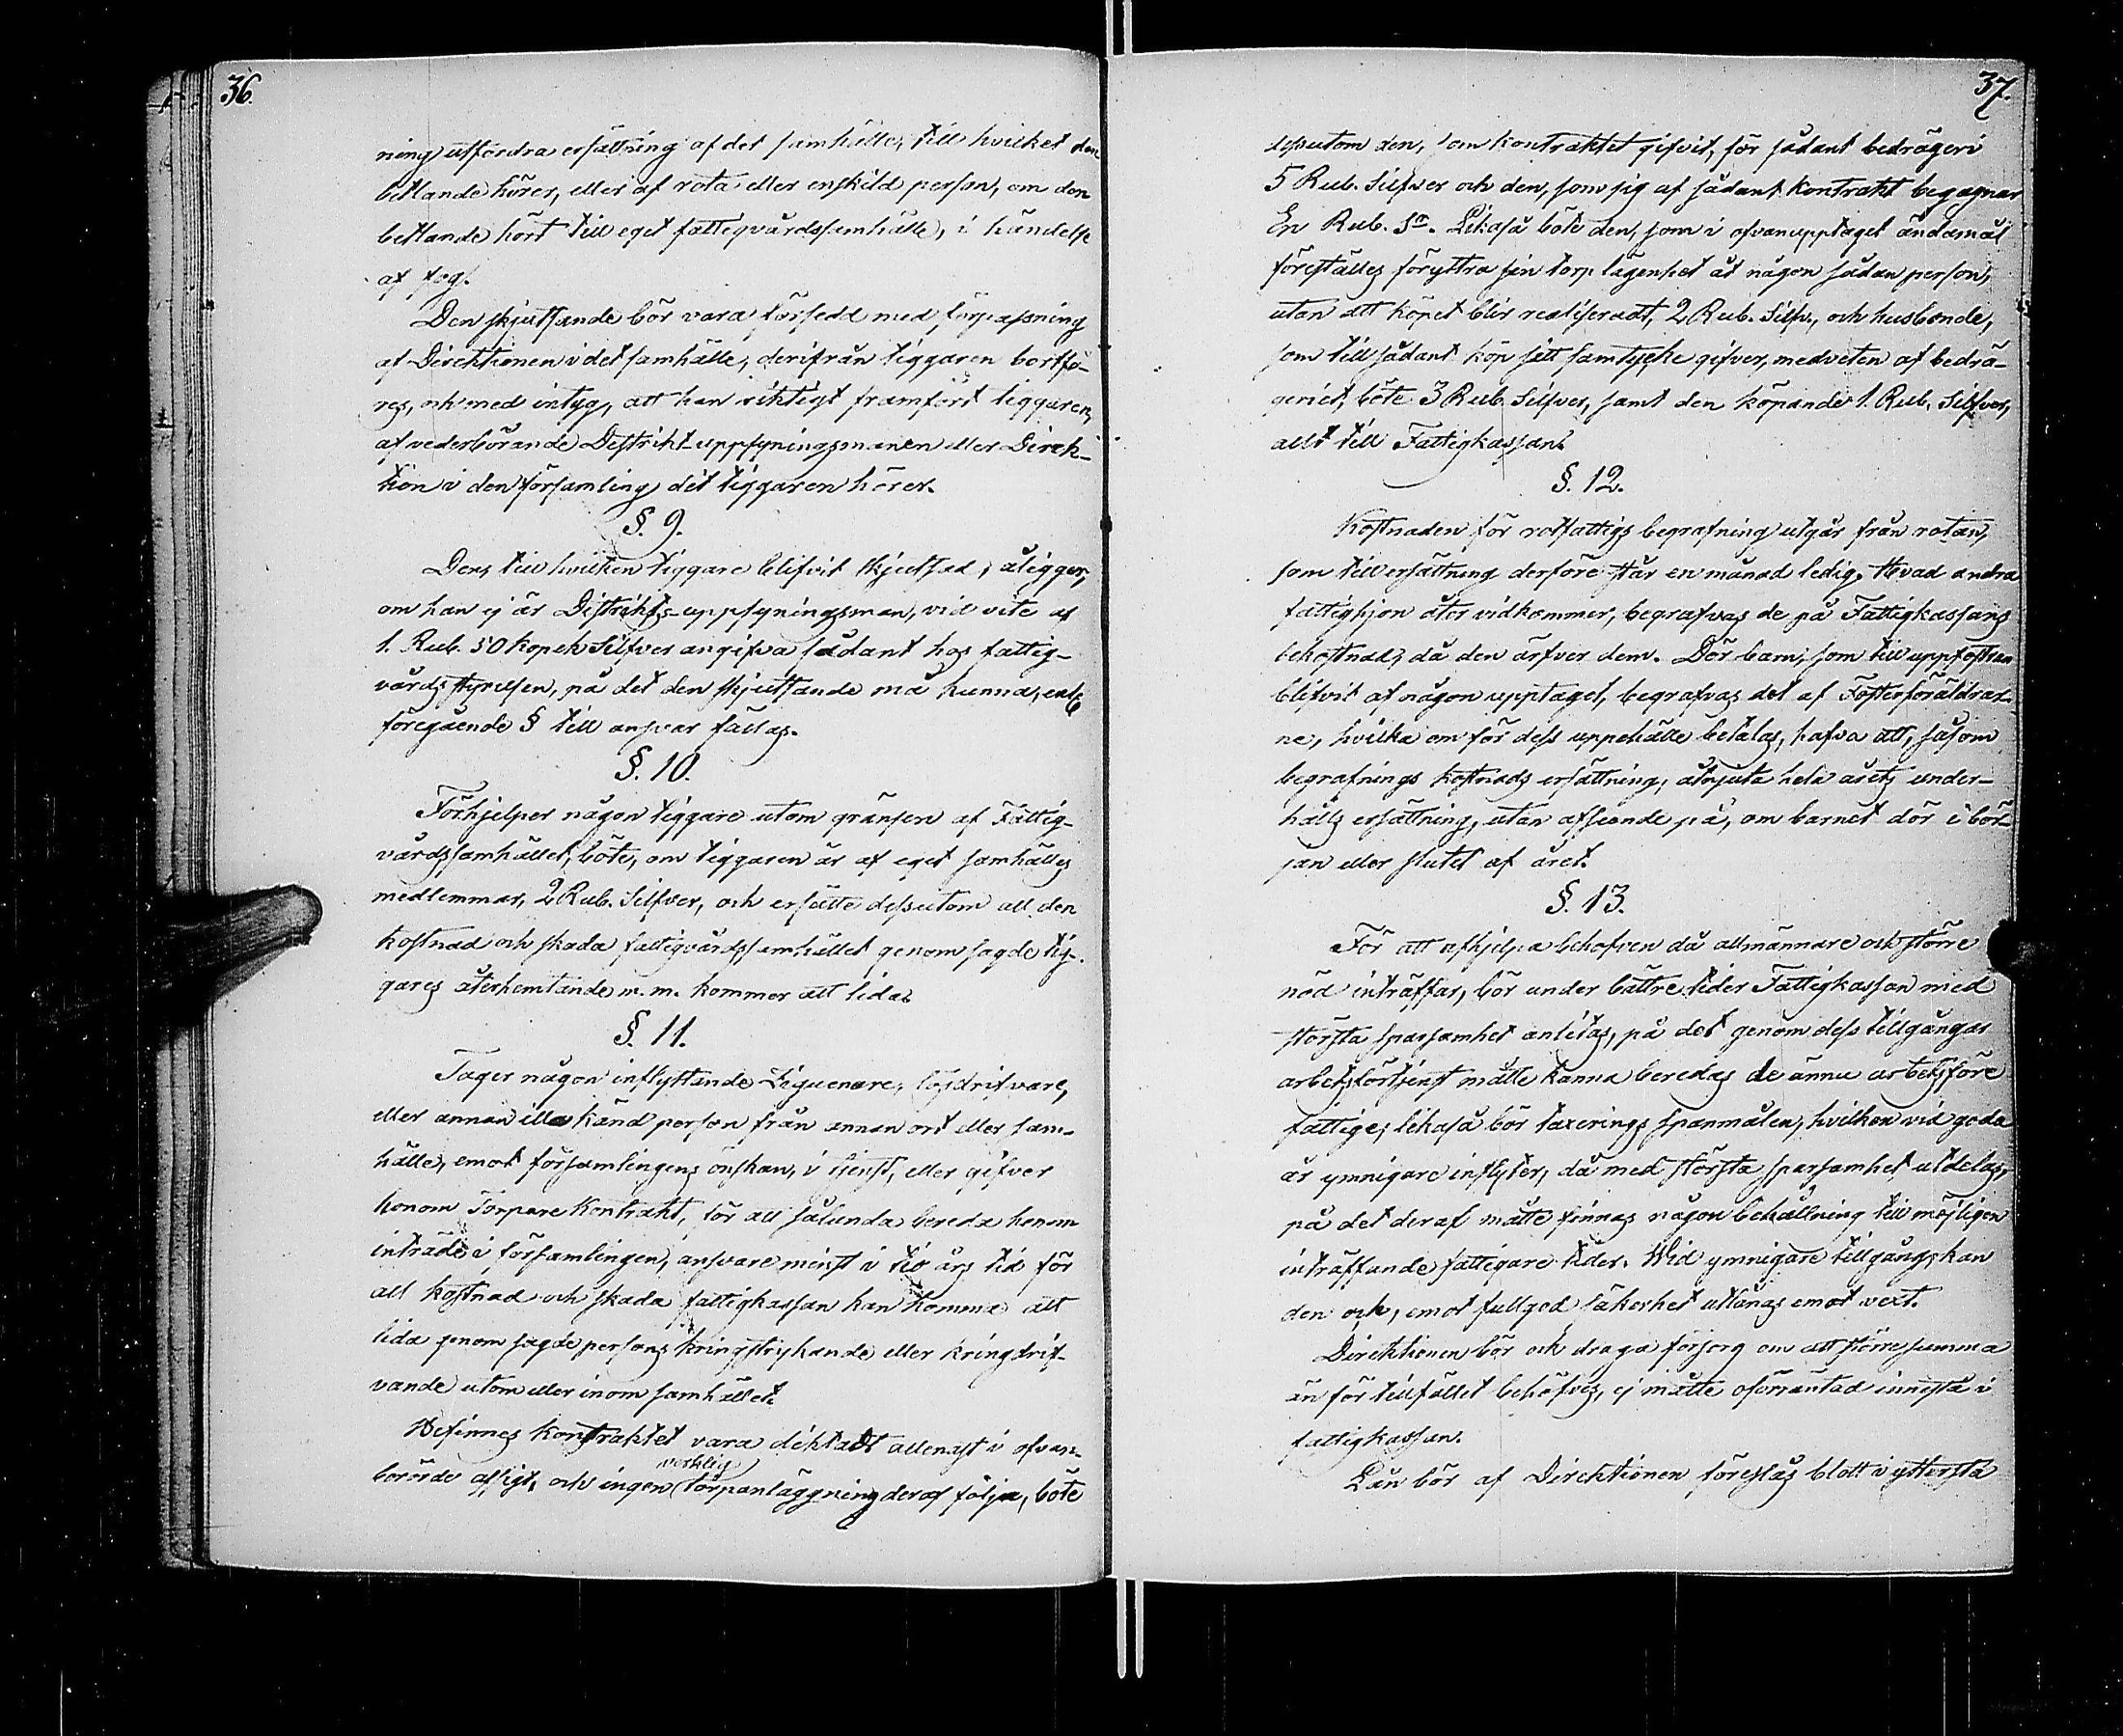 36.
ning utfordra ersättning af det samhälle, till hvilket den
betlande hörer, eller af rota eller enskild person, om den
betlande hört till eget fattigvårdssamhälle, i händelse
af sog.
Den skjutsande bör vara försedd med förpassning
af Direktionen i det samhälle, derifrån tiggaren bortfö-
res, och med intyg, att han riktigt framfört tiggaren,
af vederbörande Distrikt-uppsyningsmanen eller Direk-
tion i den församling dit tiggaren hörer.
§. 9.
Den, till hvilken tiggare blifvit skjutsad, åligger,
om han ej är Distrikts-uppsyningsman, vid vite af
1. Rub. 50 kopek Silfver angifva sådant hos fattig-
vårds styrelsen, på det den skjutsande må kunna, enl.
föregående § till ansvar fällas.
§. 10.
Förhjelper någon tiggare utom gränsen af Fattig-
vårdssamhället, böte, om tiggaren är af eget samhälles
medlemmar, 2 Rub. Silfver, och ersätte dessutom all den
kostnad och skada fattigvårdssamhället genom sagde tig-
gares återhemtande m.m. kommer att lida.
§. 11.
Tager någon inflyttande Ziguenare, lösdrifvare,
eller annan illa känd person från annan ort eller sam-
hälle, emot församlingens önskan, i tjenst, eller gifver
honom Torpare kontrakt, för att sålunda bereda honom
inträde i församlingen, ansvare minst i tio års tid för
all kostnad och skada fattigkassan kan komma att
lida genom sagde persons kringstrykande eller kringdrif-
vande utom eller inom samhället.
Befinnes kontraktet vara diktadt allenast i ofvan-
verklig
berörde afsigt, och ingen torpanläggning deraf följa, böte
37.
dessutom den, som kontraktet gifvit, för sådant bedrägeri
5 Rub. Silfver och den, som sig af sådant kontrakt begagnar
En Rub. Sr. Likaså böte den, som i ofvanupptaget ändamål
föreställes föryttra sin torp lägenhet åt någon sådan person,
utan att köpet blir realiseradt, 2 Rub. Silfv., och husbonde,
som till sådant köp sitt samtycke gifver, medveten af bedrä-
geriet, böte 3 Rub Silfver, samt den köpande 1. Rub. Silfver,
allt till Fattigkassan.
§. 12.
Kostnaden för rotfattigs begrafning utgår från rotan,
som till ersättning derföre står en månad ledig. Hvad andra
fattighjon åter vidkommer, begrafvas de på Fattigkassans
bekostnad, då den ärfver dem. Dör barn, som till uppfostran
blifvit af någon upptaget, begrafvas det af Fosterföräldrar-
ne, hvilka om för dess uppehälle betalas, hafva att, såsom
begrafnings kostnads ersättning, åtnjuta hela årets under-
hålls ersättning, utan afseende på, om barnet dör i bör-
jan eller slutet af året.
§. 13.
För att afhjelpa behofven då allmännare och större
nöd inträffar, bör under bättre tider Fattigkassan med
största sparsamhet anlitas, på det genom dess tillgångar
arbetsförtjenst måtte kunna beredas de ännu arbetsföre
fattige; likaså bör taxerings spanmålen, hvilken vid goda
år ymnigare inflyter, då med största sparsamhet utdelas,
på det deraf måtte finnas någon behållning till möjligen
inträffande fattigare tider. Wid ymnigare tillgång, kan
den ock, emot fullgod säkerhet utlånas emot vext.
Direktionen bör och draga försorg om att större summa
än för tillfället behöfves, ej måtte oförräntad innestå i
fattigkassan.
Lån bör af Direktionen föreslås blott i yttersta